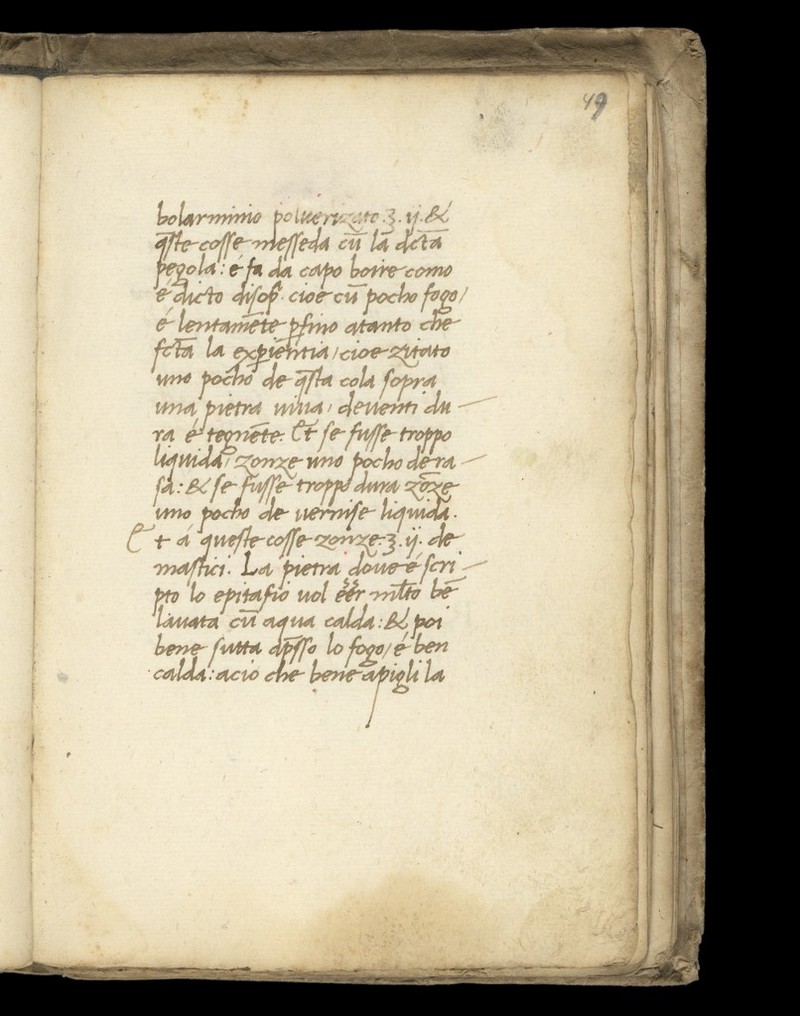 49
bolarminio polverizato .ʒ. ij. &
q̄ste cosse messeda cū la dctā
pegola: é fa da capo boire como
é dicto disop̄. cioe cū pocho fogo/
é lentamēte p̱fino atanto che
fctā la exp̱ientia/cioe zitato
uno pocho de q̄sta cola sopra
una pietra viva, deventi du-
ra é tegnēte. Et se fusse troppo
liquida, zonze uno pocho de ra-
sa: & se fusse troppo dura zōze
uno pocho de vernise liquida.
Et á queste cosse zonze .ʒ. ij. de
mastici. La pietra dove é scri-
pto lo epitafio vol ēēr mlto bē
lavata cū aqua calda: & poi
bene sutta ap̄sso lo fogo/é ben
calda: acio che bene apigli la